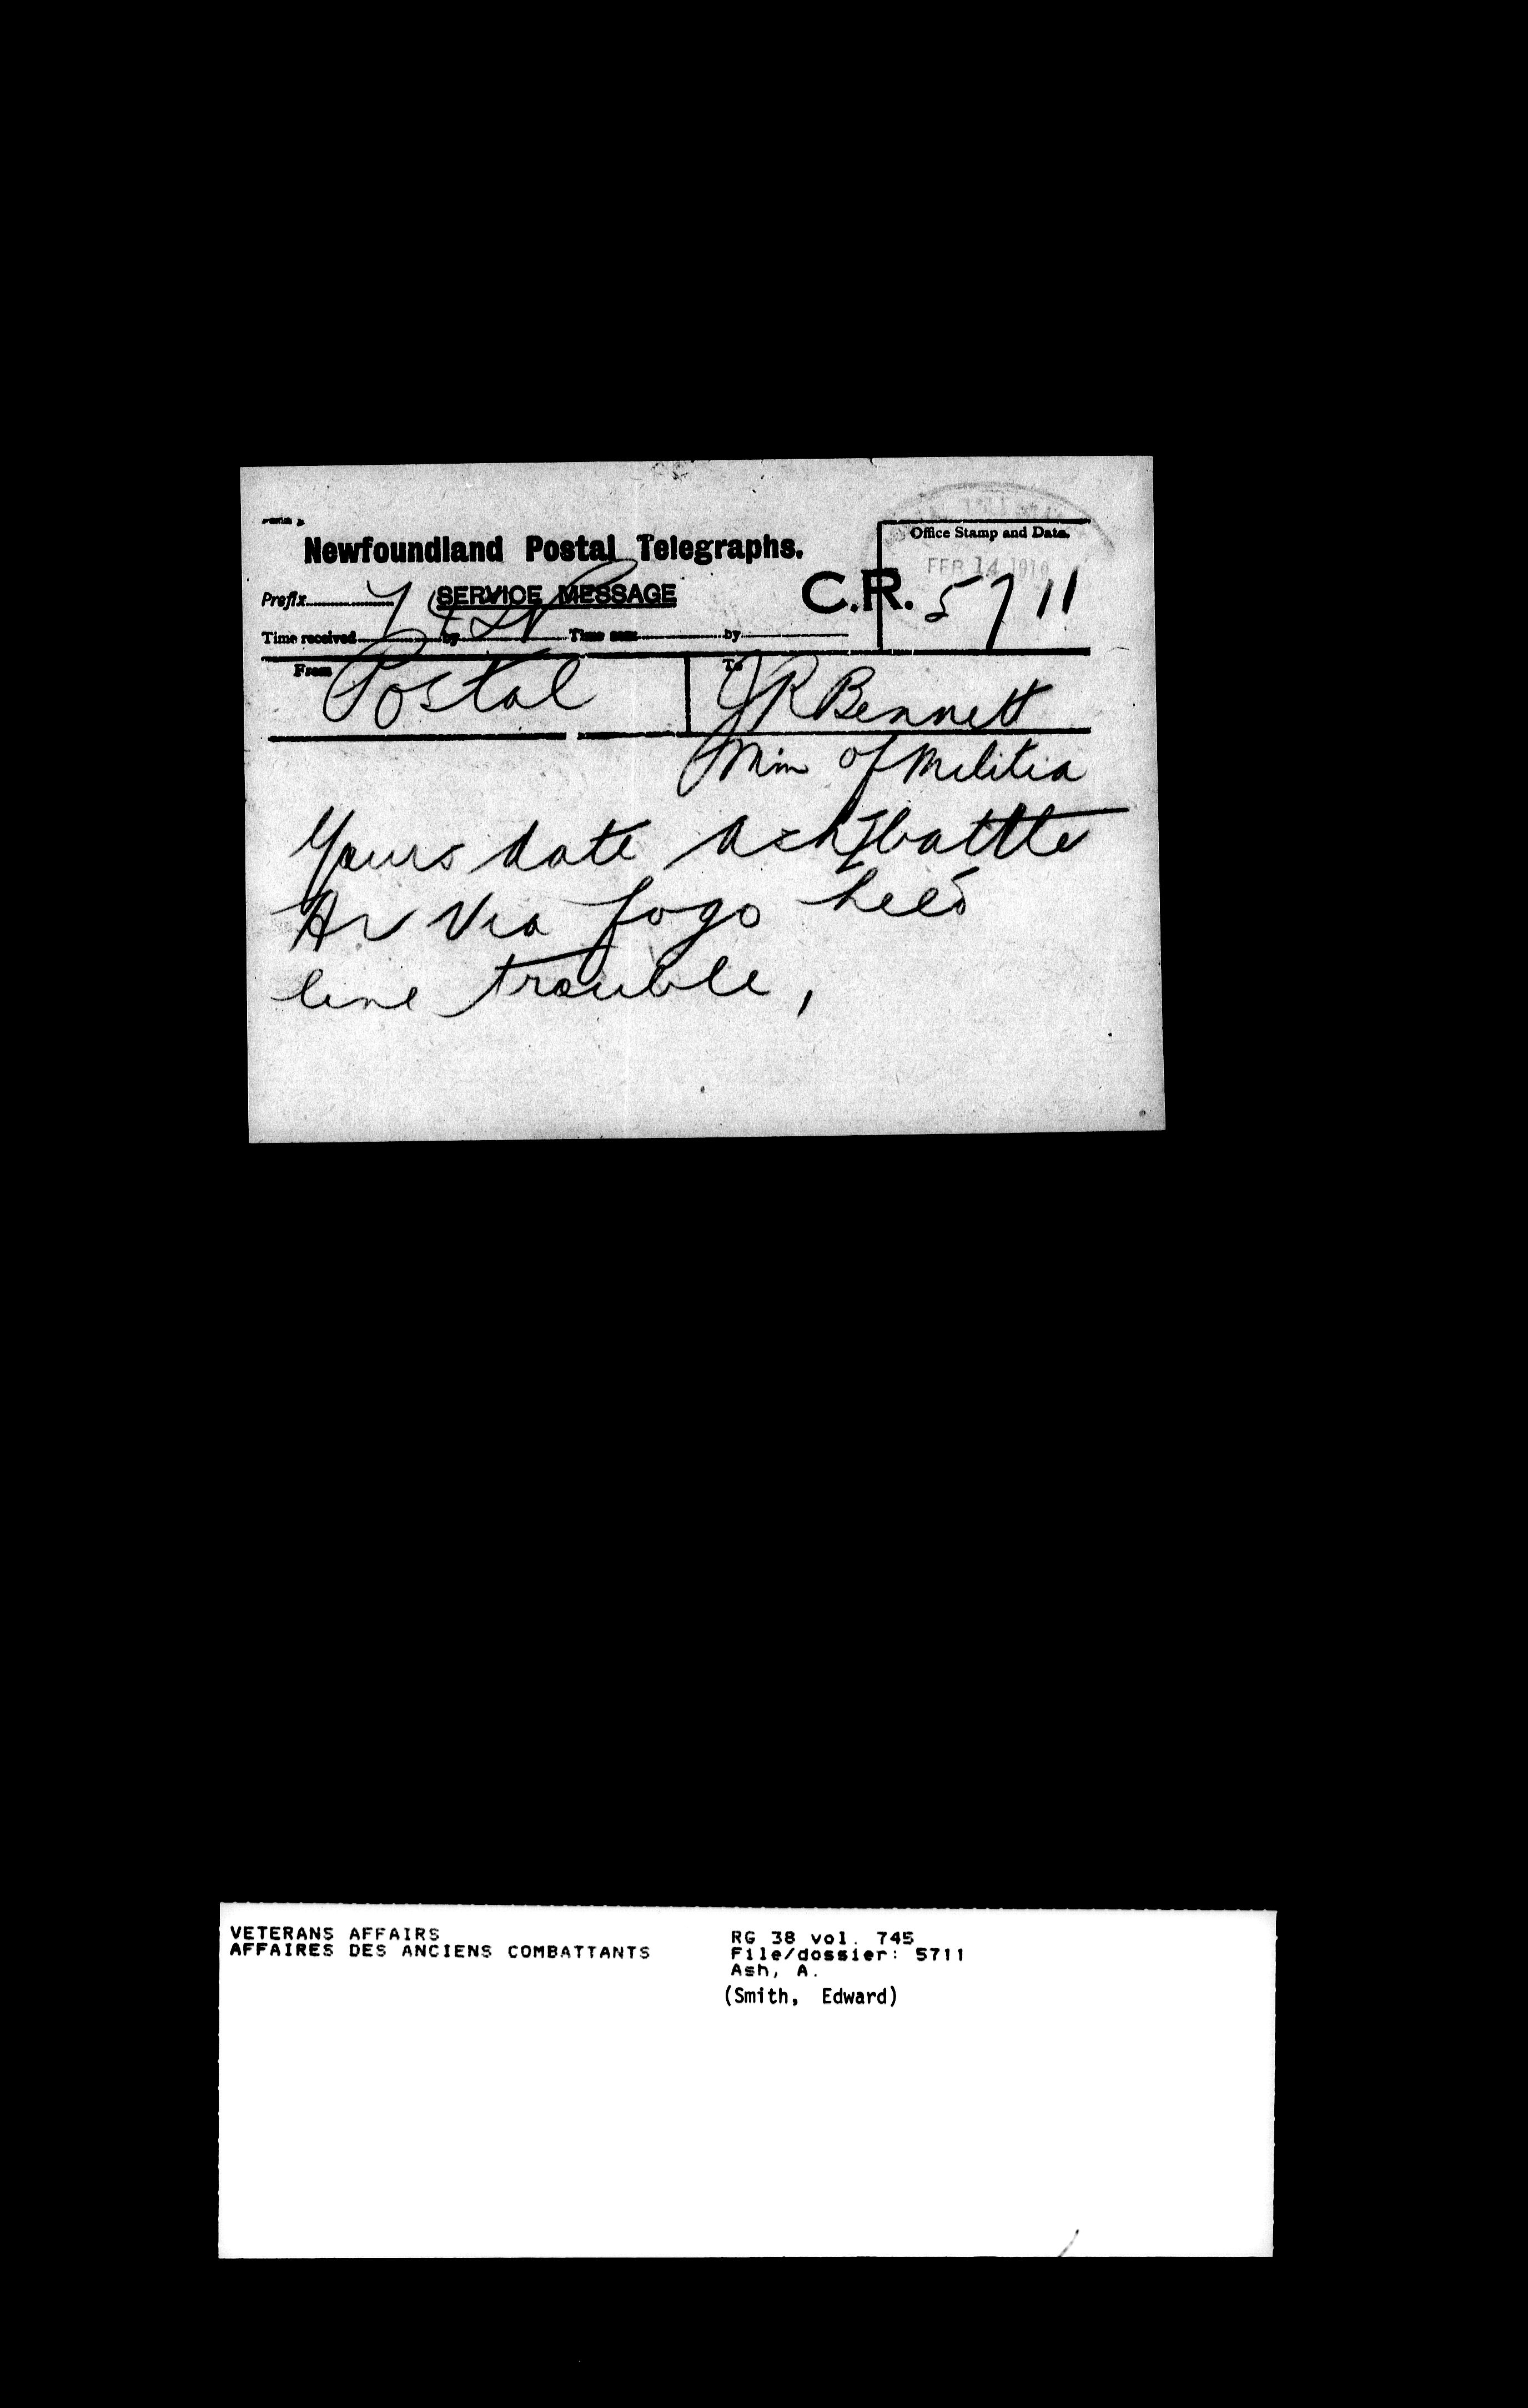 Newfoundland Postal Telegraphs.
Office Stamp and Date.
FEB 14
Prefix
SERVICE MESSAGE
C.R. 5711
Time received by Time sent by
From Postal
To JR Bennett
Min of Militia
Yours date Ash battle
Hr Via fogo held
line trouble,
VETERANS AFFAIRS
AFFAIRES DES ANCIENS COMBATTANTS
RG 38 vol. 745
File/dossier: 5711
Ash, A.
(Smith, Edward)